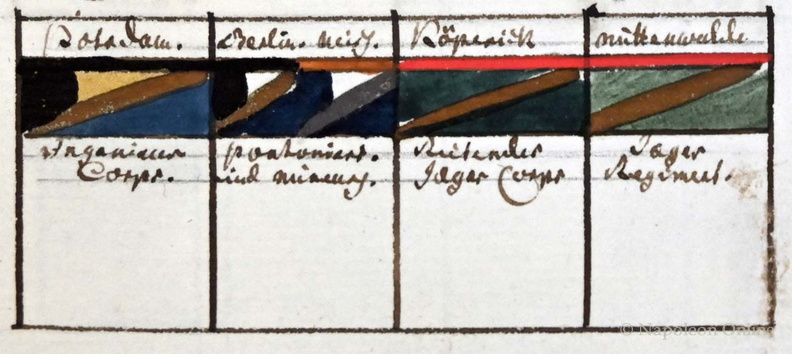 Potsdam.
Berlin. Neiß.
Köpenick
Mittenwalde
Ingenieur
Corps.
Pontoniers.
und Mineurs.
Reitendes
Jæger Corps
Jæger
Regiment.
© Napoleon Online